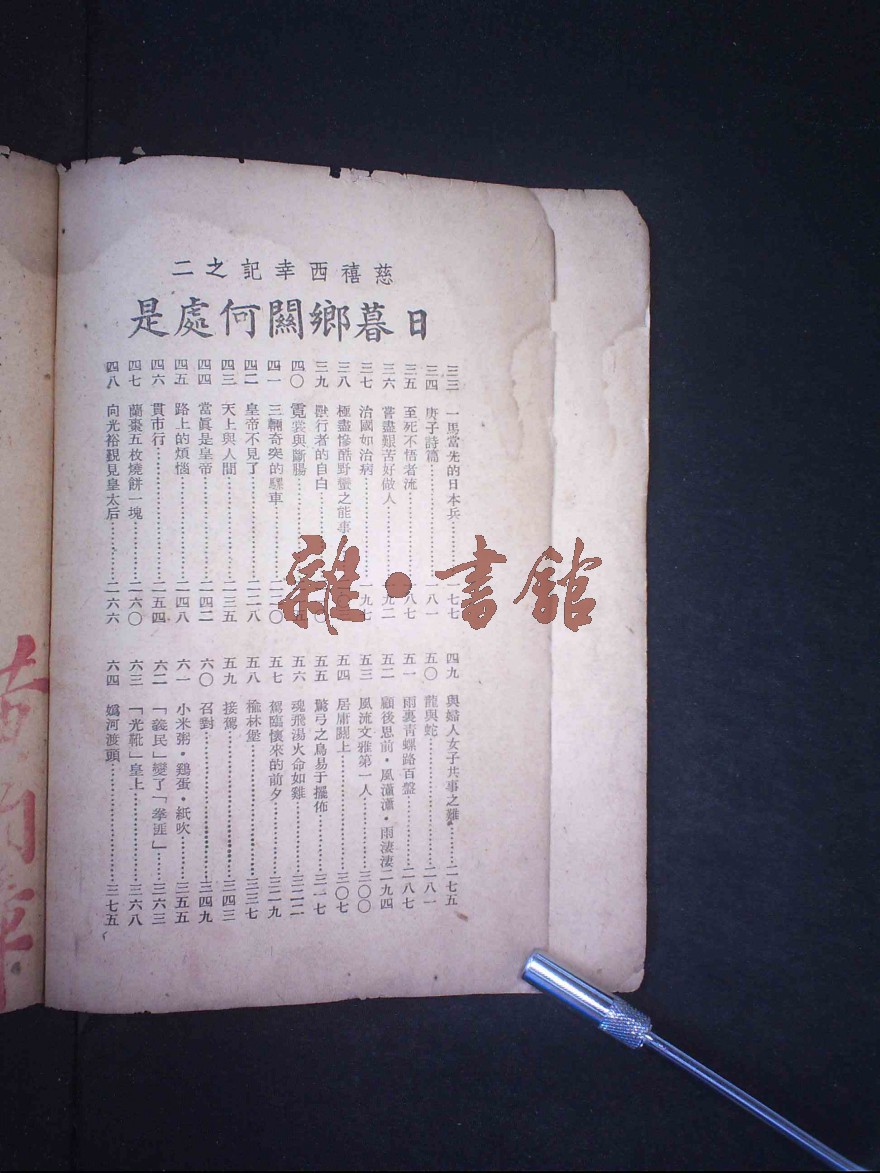 慈禧西幸記之二
日暮鄉關何處是
三三 一馬當先的日本兵 一七七
三四 庚子詩篇 一八一
三五 至死不悟者流 一八七
三六 嘗盡艱苦好做人 一九二
三七 治國如治病 一九七
三八 極盡慘酷野蠻之能事
三九 獸行者的自白
四〇 霓裳與斷腸
四一 三輛奇突的騾車 二二〇
四二 皇帝不見了 二二八
四三 天上與人間 二三五
四四 當眞是皇帝 二四二
四五 路上的煩惱 二四八
四六 貫市行 二五四
四七 蘭棗五枚燒餅一塊 二六〇
四八 向光裕覲見皇太后 二六六
四九 與婦人女子共事之難 二七五
五〇 龍與蛇 二八一
五一 雨裏靑螺路百盤 二八七
五二 顧後思前・風瀟瀟・雨淒淒 二九四
五三 風流文雅第一人 三〇〇
五四 居庸關上 三〇七
五五 驚弓之鳥易于擺佈 三一七
五六 魂飛湯火命如雞 三二二
五七 駕臨懷來的前夕 三二九
五八 楡林堡 三三七
五九 接駕 三四三
六〇 召對 三四九
六一 小米粥・鷄蛋・紙吹 三五五
六二 「義民」變了「拳匪」 三六三
六三 「光靴」皇上 三六八
六四 嬀河渡頭 三七五
雜・書館